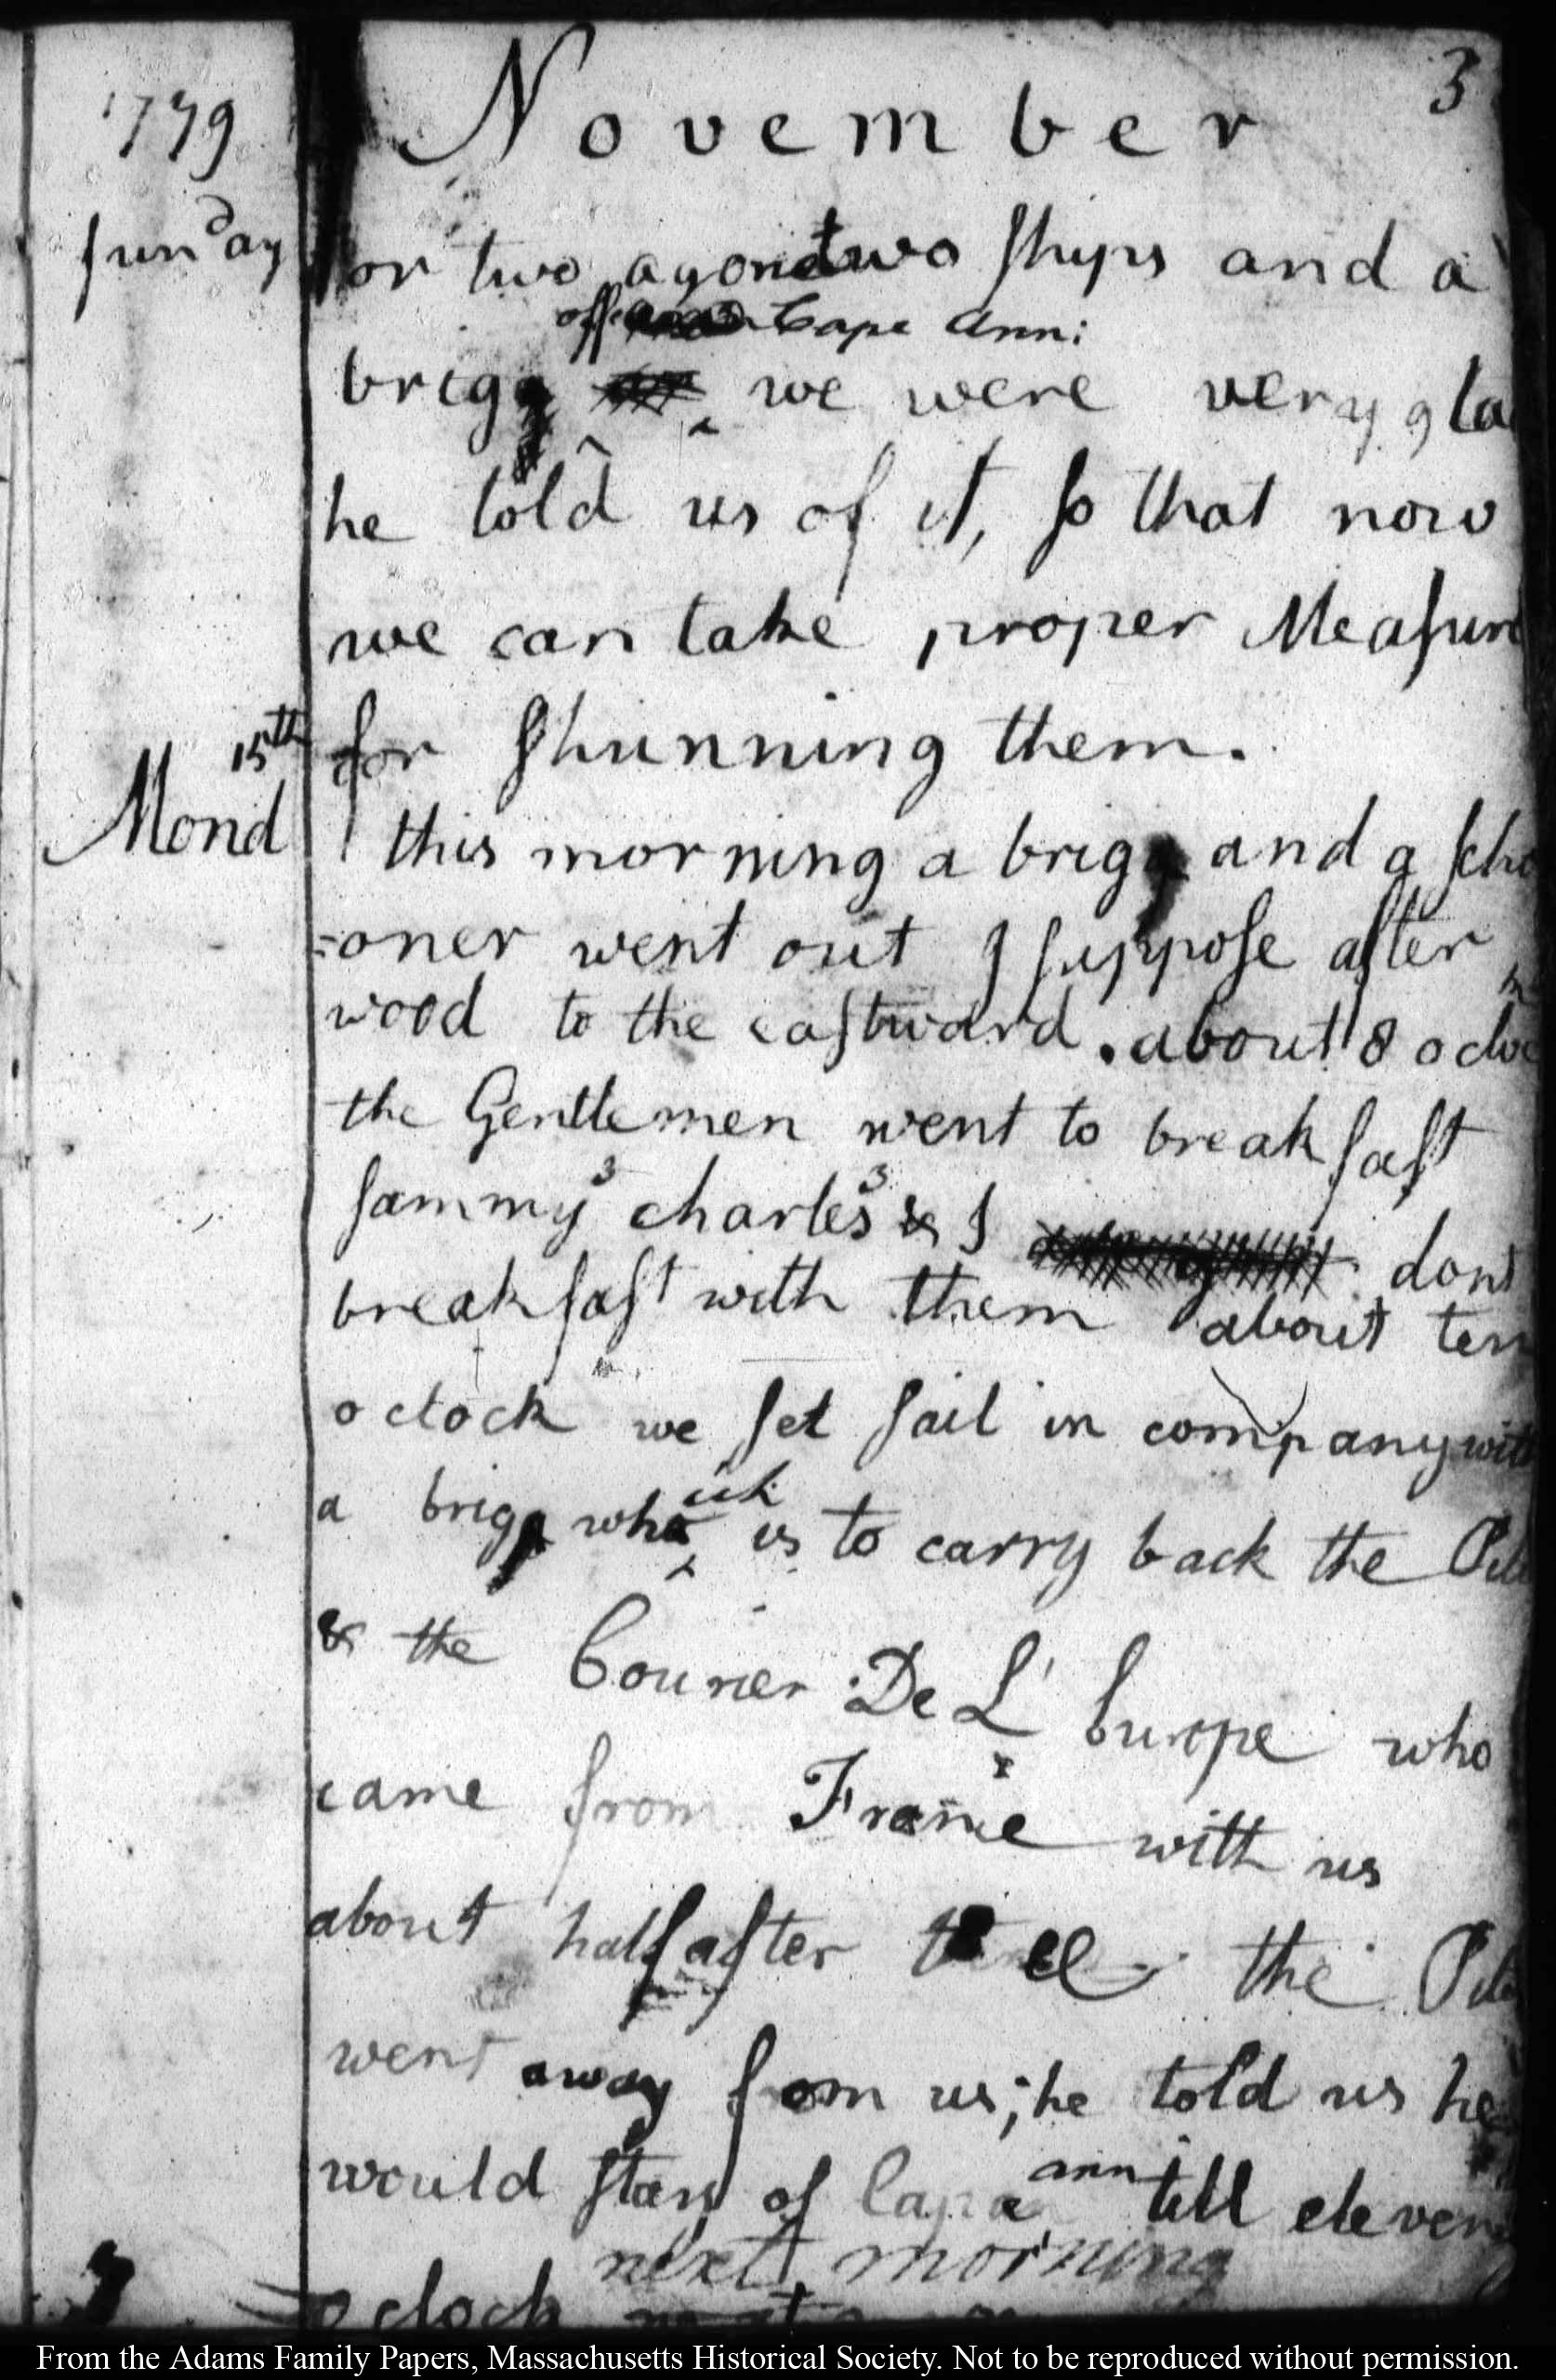 1779 November 3
Sunday or two agone two Ships and a
off Cape Ann:
brigg we were very gla
he told us of it, So that now
we can take proper Measure
15th for Shunning them.
Mond this morning a brigg and a Scho
=oner went out I Suppose after
wood to the eastward. about 8 o cloc
the Gentlemen went to breakfast
Sammy 3 charles 3 & I dont
breakfast with them about ten
o clock we Set Sail in company with
ich
a brigg who is to carry back the Pil
& the Courier De L' Europe who
came from France with us
about half after the Pil
went away from us; he told us he
ann
would Stay of Cape till eleven
next morning
o clock
From the Adams Family Papers, Massachusetts Historical Society. Not to be reproduced without permission.